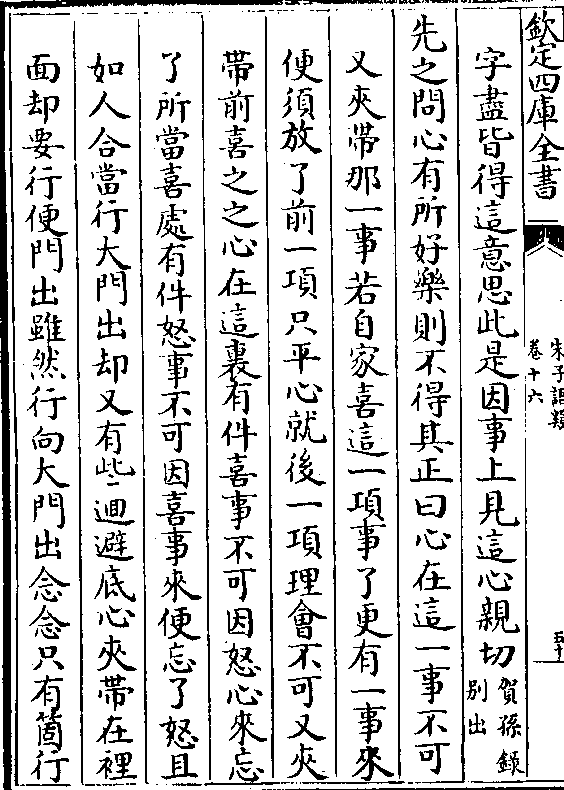 欽定四庫全書
朱子語類
卷十六
五十
字盡皆得這意思此是因事上見這心親切賀孫録
別出
先之問心有所好樂則不得其正曰心在這一事不可
又夾帶那一事若自家喜這一項事了更有一事來
便須放了前一項只平心就後一項理會不可又夾
帶前喜之之心在這裏有件喜事不可因怒心來忘
了所當喜處有件怒事不可因喜事來便忘了怒且
如人合當行大門出却又有些迴避底心夾帶在裡
面却要行便門出雖然行向大門出念念只有箇行